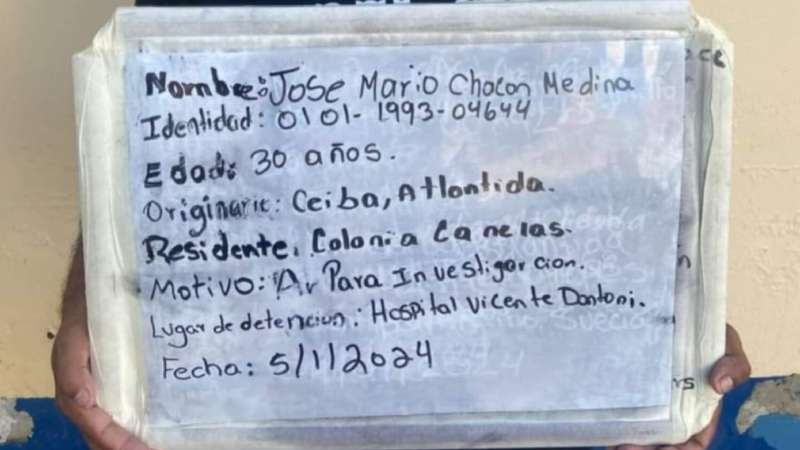 Nombre: Jose Mario Chacon Medina
Identidad: 0101-1993-04644
Edad: 30 años.
Originario: Ceiba, Atlantida.
Residente. Colonia Canelas.
Motivo: Ar Para Investigarcion.
Lugar de detencion: Hospital Vicente Dantoni.
Fecha: 5/1/2024